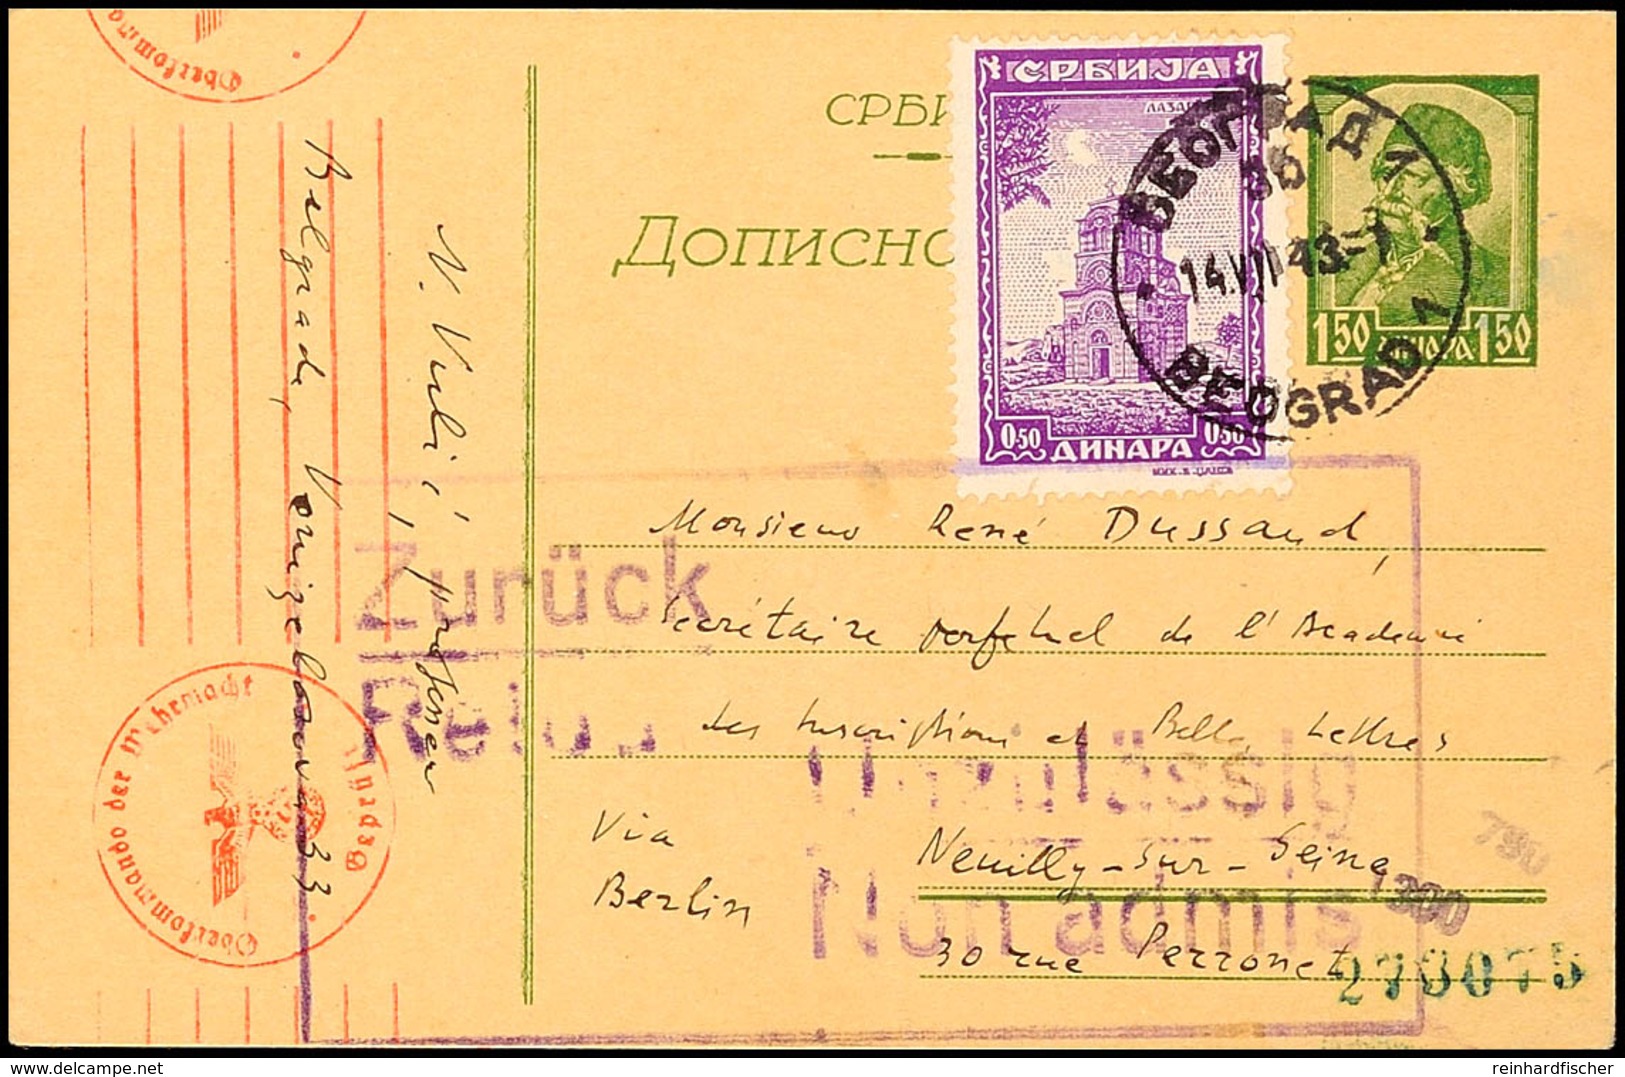 Oberkomma
СРБИ
Дописно
СРБИЈА
ЛАЗА
0.50 ДИНАРА 0.50
БЕОГРАД 1
36
14.VII.43-7
BEOGRAD 1
1.50 ДИНАРА 1.50
N. Vulić, professeur
Belgrade, 33
Monsieur René Dussaud,
Secrétaire perpétuel de l'Académie
des Inscriptions et Belles Lettres
Neuilly-sur-Seine
30 rue Perronet
Via
Berlin
Zurück
Retour
Unzulässig
Non admis
Oberkommando der Wehrmacht
Geprüft
1300
273075
www.delcampe.net
reinhardfischer